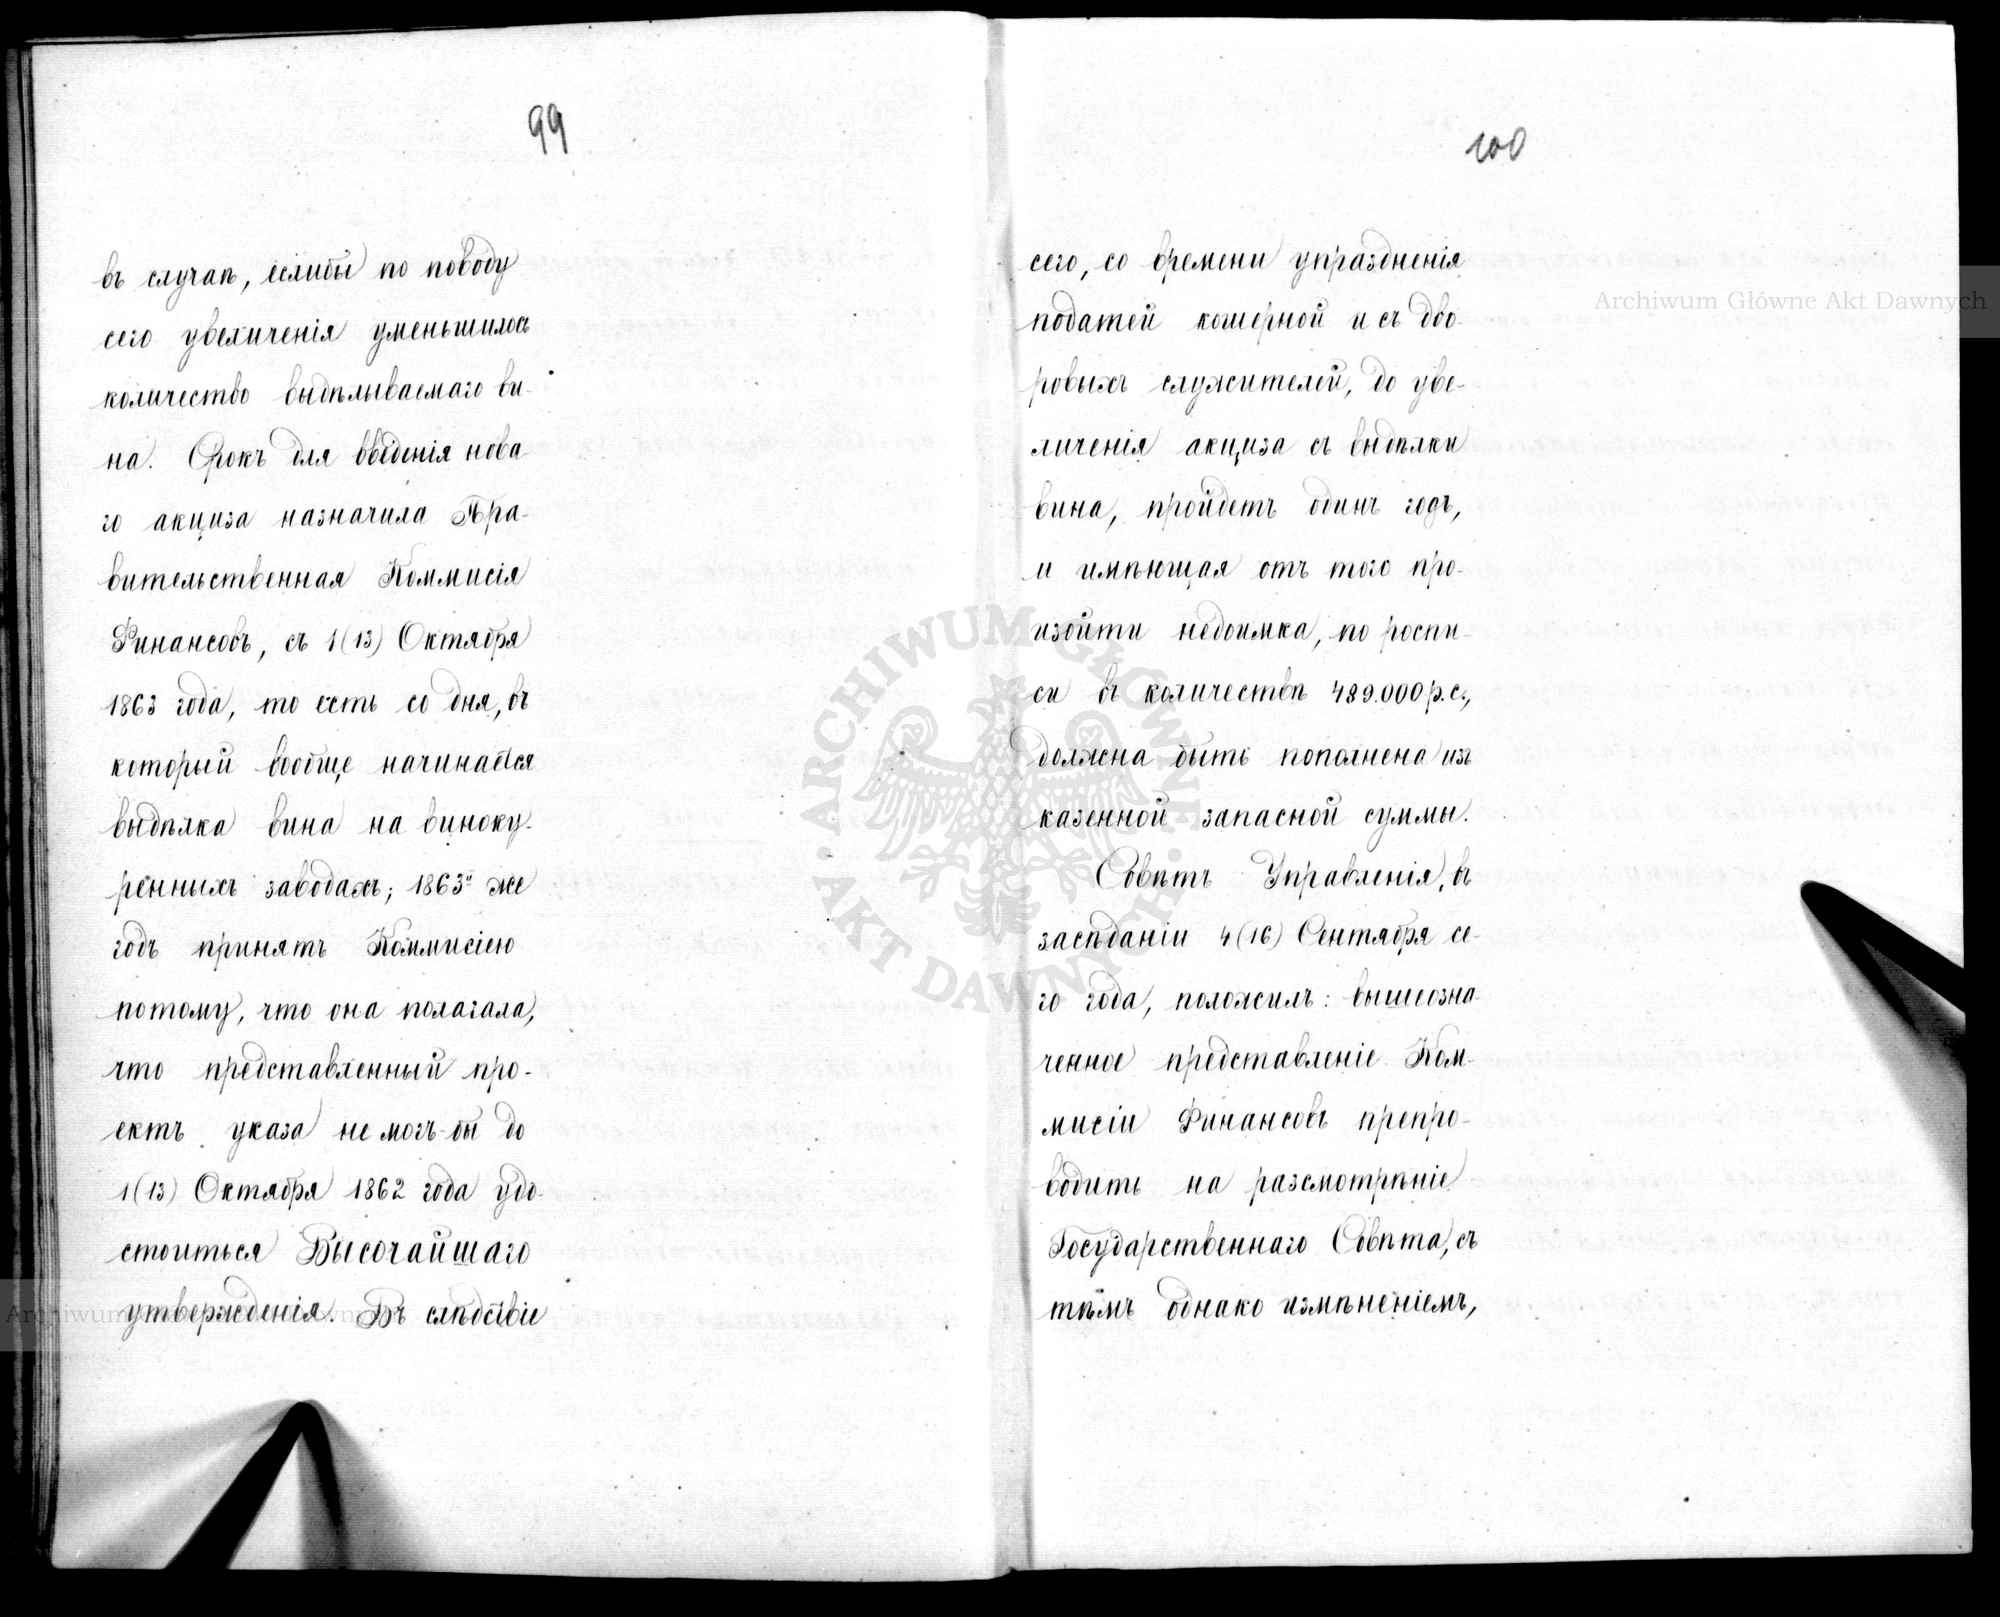 99
въ случаѣ, еслибы по поводу
сего увеличенія уменьшилось
количество выдѣлываемаго ви-
на. Срокъ для введенія нова-
го акциза назначила Пра-
вительственная Коммисія
Финансовъ, съ 1(13) Октября
1863 года, то есть со дня, въ
который вообще начинается
выдѣлка вина на виноку-
ренныхъ заводахъ; 1863й же
годъ принятъ Коммисіею
потому, что она полагала,
что представленный про-
ектъ указа не могъ-бы до
1(13) Октября 1862 года удо-
стоиться Высочайшаго
утвержденія. Въ слѣдствіе
100
сего, со времени упраздненія
податей кошерной и съ дво-
ровыхъ служителей, до уве-
личенія акциза съ выдѣлки
вина, пройдетъ одинъ годъ,
и имѣющая отъ того про-
изойти недоимка, по роспи-
си въ количествѣ 489.000 р.с.,
должна быть пополнена изъ
казенной запасной суммы.
Совѣтъ Управленія, въ
засѣданіи 4(16) Сентября се-
го года, положилъ: вышеозна-
ченное представленіе Ком-
мисіи Финансовъ препро-
водить на разсмотрѣніе
Государственнаго Совѣта, съ
тѣмъ однако измѣненіемъ,
Archiwum Główne Akt Dawnych
ARCHIWUM GŁÓWNE · AKT DAWNYCH ·